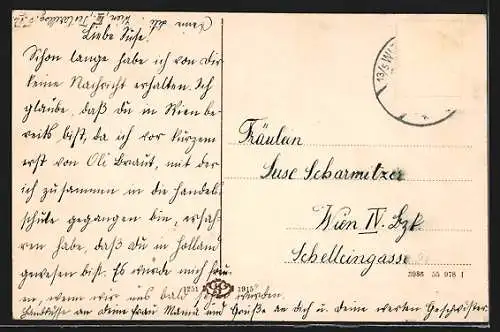 Liebe Suse.
Schon lange habe ich von Dir
keine Nachricht erhalten. Ich
glaube, daß du in Wien be
reits bist, da ich vor kurzem
erst von Oli Braut, mit der
ich zusammen in die Handels
schule gegangen bin, erfah
ren habe, daß du in Holland
gewesen bist. Es würde mich freu
en, wenn wir uns bald sehen werden.
Handküsse an deine Frau Mama und Grüße an dich u. deine werten Geschwister
Fräulein
Suse Scharmitzer
Wien IV. Bzk.
Schelleingasse
1251 1915
5986 55 978 1
13/5 WI